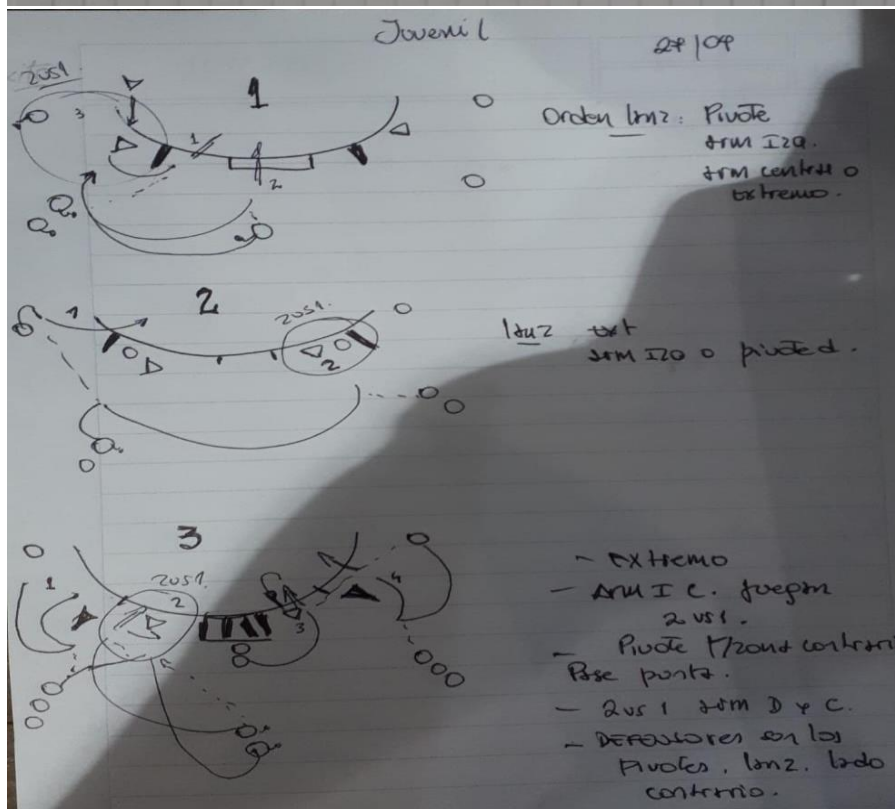 Juvenil
27/04
2vs1
3
1
1
2
Orden lanz: Pivote
arm Izq.
arm central o
extremo.
2
1
2vs1.
2
lanz ext
arm IZQ o pivote d.
3
1
2vs1.
2
3
4
- extremo
- Arm I C. juegan
2 vs1.
- Pivote
Pase punta.
- 2vs1 arm D y C.
- DEFENSORES en los
Pivotes. lanz. lado
contrario.